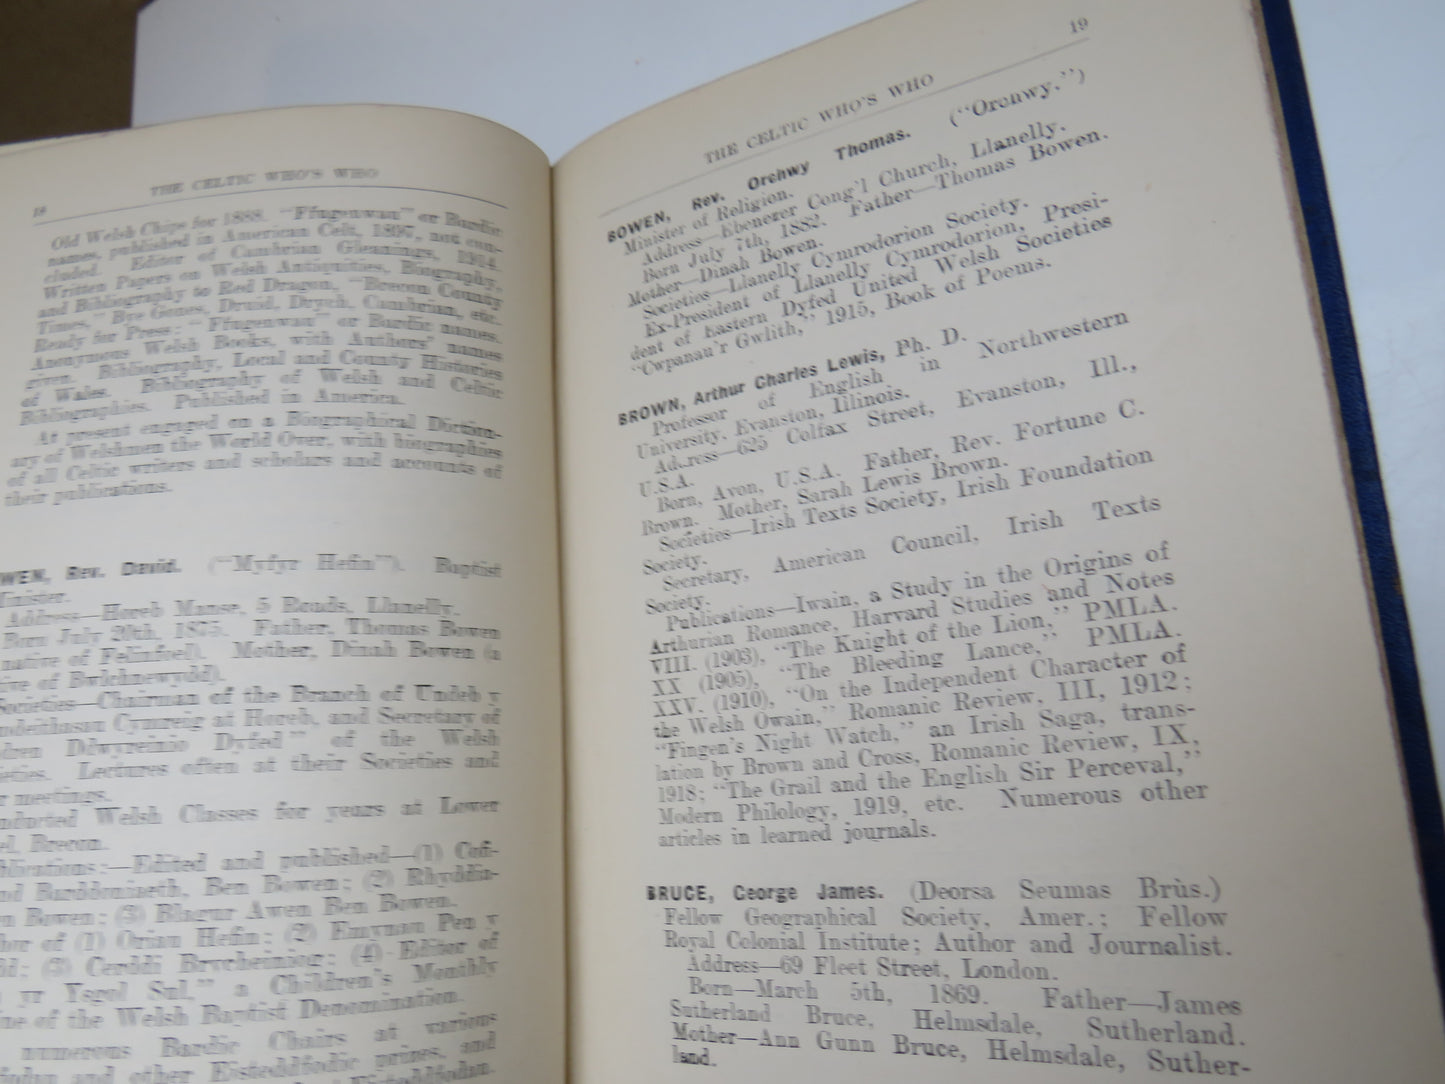 18
THE CELTIC WHO'S WHO
Old Welsh Chips for 1888. "Ffugenwau" or Bardic
names, published in American Celt, 1897, not con-
cluded. Editor of Cambrian Gleanings, 1914.
Written Papers on Welsh Antiquities, Biography,
and Bibliography to Red Dragon, "Brecon County
Times," Bye Gones, Druid, Drych, Cambrian, etc.
Ready for Press: "Ffugenwau" or Bardic names.
Anonymous Welsh Books, with Authors' names
given. Bibliography, Local and County Histories
of Wales. Bibliography of Welsh and Celtic
Bibliographies. Published in America.
At present engaged on a Biographical Diction-
ary of Welshmen the World Over, with biographies
of all Celtic writers and scholars and accounts of
their publications.
WEN, Rev. David. ("Myfyr Hefin"). Baptist
Minister.
Address—Horeb Manse, 5 Roads, Llanelly.
Born July 20th, 1875. Father, Thomas Bowen
native of Felinfoel). Mother, Dinah Bowen (a
tive of Bwlchnewydd).
Societies—Chairman of the Branch of Undeb y
Cymreig at Horeb, and Secretary of
Dwyreinio Dyfed" of the Welsh
ieties. Lectures often at their Societies and
r meetings.
nducted Welsh Classes for years at Lower
el, Brecon.
blications:—Edited and published—(1) Cofi-
nd Barddoniaeth, Ben Bowen; (2) Rhyddia-
n Bowen; (3) Blagur Awen Ben Bowen.
hor of (1) Orian Hefin; (2) Emynau Pen y
ld; (3) Cerddi Brycheiniog; (4) Editor of
yr Ysgol Sul," a Children's Monthly
ine of the Welsh Baptist Denomination.
numerous Bardic Chairs at various
and other Eisteddfodic prizes, and
Eisteddfodau.
19
THE CELTIC WHO'S WHO
BOWEN, Rev. Orchwy Thomas. ("Orchwy.")
Minister of Religion.
Address—Ebenezer Cong'l Church, Llanelly.
Born July 7th, 1882. Father—Thomas Bowen.
Mother—Dinah Bowen.
Societies—Llanelly Cymrodorion Society.
Ex-President of Llanelly Cymrodorion, Presi-
dent of Eastern Dyfed United Welsh Societies
"Cwpanau'r Gwlith," 1915, Book of Poems.
BROWN, Arthur Charles Lewis, Ph. D.
Professor of English in Northwestern
University, Evanston, Illinois.
Address—625 Colfax Street, Evanston, Ill.,
U.S.A.
Born, Avon, U.S.A. Father, Rev. Fortune C.
Brown. Mother, Sarah Lewis Brown.
Societies—Irish Texts Society, Irish Foundation
Society.
Secretary, American Council, Irish Texts
Society.
Publications—Iwain, a Study in the Origins of
Arthurian Romance, Harvard Studies and Notes
VIII. (1903), "The Knight of the Lion," PMLA.
XX (1905), "The Bleeding Lance," PMLA.
XXV. (1910), "On the Independent Character of
the Welsh Owain," Romanic Review, III, 1912;
"Fingen's Night Watch," an Irish Saga, trans-
lation by Brown and Cross, Romanic Review, IX,
1918; "The Grail and the English Sir Perceval,"
Modern Philology, 1919, etc. Numerous other
articles in learned journals.
BRUCE, George James. (Deorsa Seumas Brùs.)
Fellow Geographical Society, Amer.; Fellow
Royal Colonial Institute; Author and Journalist.
Address—69 Fleet Street, London.
Born—March 5th, 1869. Father—James
Sutherland Bruce, Helmsdale, Sutherland.
Mother—Ann Gunn Bruce, Helmsdale, Suther-
land.